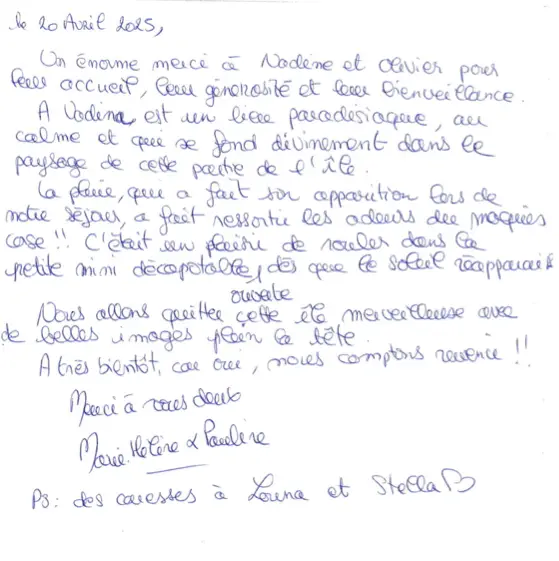 le 20 Avril 2025,
Un énorme merci à Nadine et Olivier pour
leur accueil, leur générosité et leur bienveillance.
A Vadina est un lieu paradisiaque, au
calme et qui se fond divinement dans le
paysage de cette partie de l'île.
La pluie, qui a fait son apparition lors de
notre séjour, a fait ressortir les odeurs du maquis
corse !! C'était un plaisir de rouler dans la
petite mini décapotable, dès que le soleil réapparait
ouverte
Nous allons quitter cette île merveilleuse avec
de belles images plein la tête.
A très bientôt, car oui, nous comptons revenir !!
Merci à vous deux
Marie.Hélène & Pauline
PS: des caresses à Louna et Stella